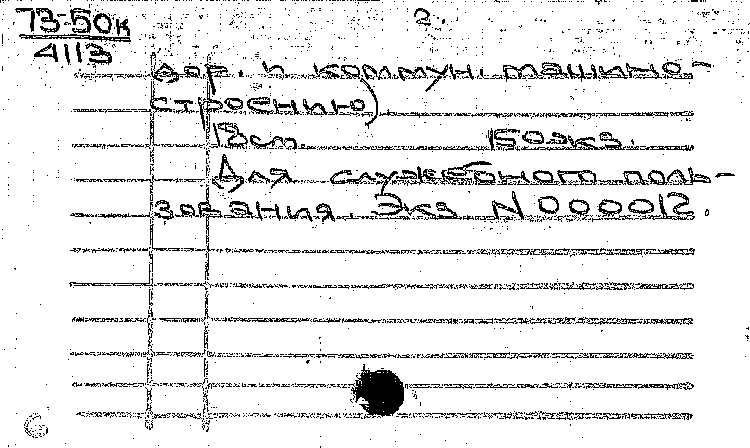 73-50к
4113
2.
дор. и коммун. машино-
строению)
12 с т. 150экз.
Для служебного поль-
зования. Экз N 000012.